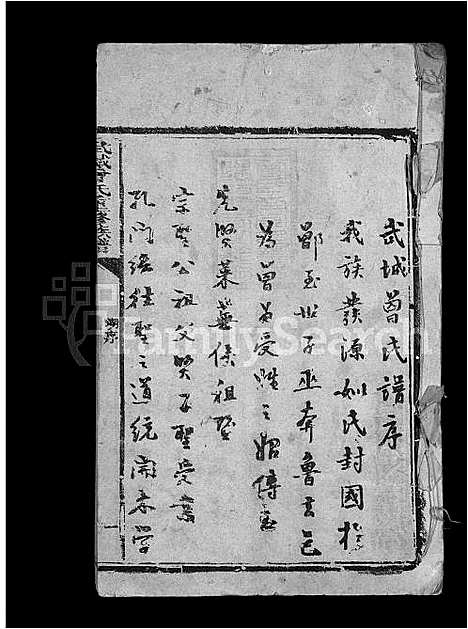 武城曾氏譜序
我族發源姒氏封國於
鄫至世子巫奔魯去邑
為曾為受姓之始傳至
先賢萊蕪侯祖暨
宗聖公祖父賢子聖受業
孔門繼往聖之道統開來學
武城曾氏重修族譜
FamilySearch